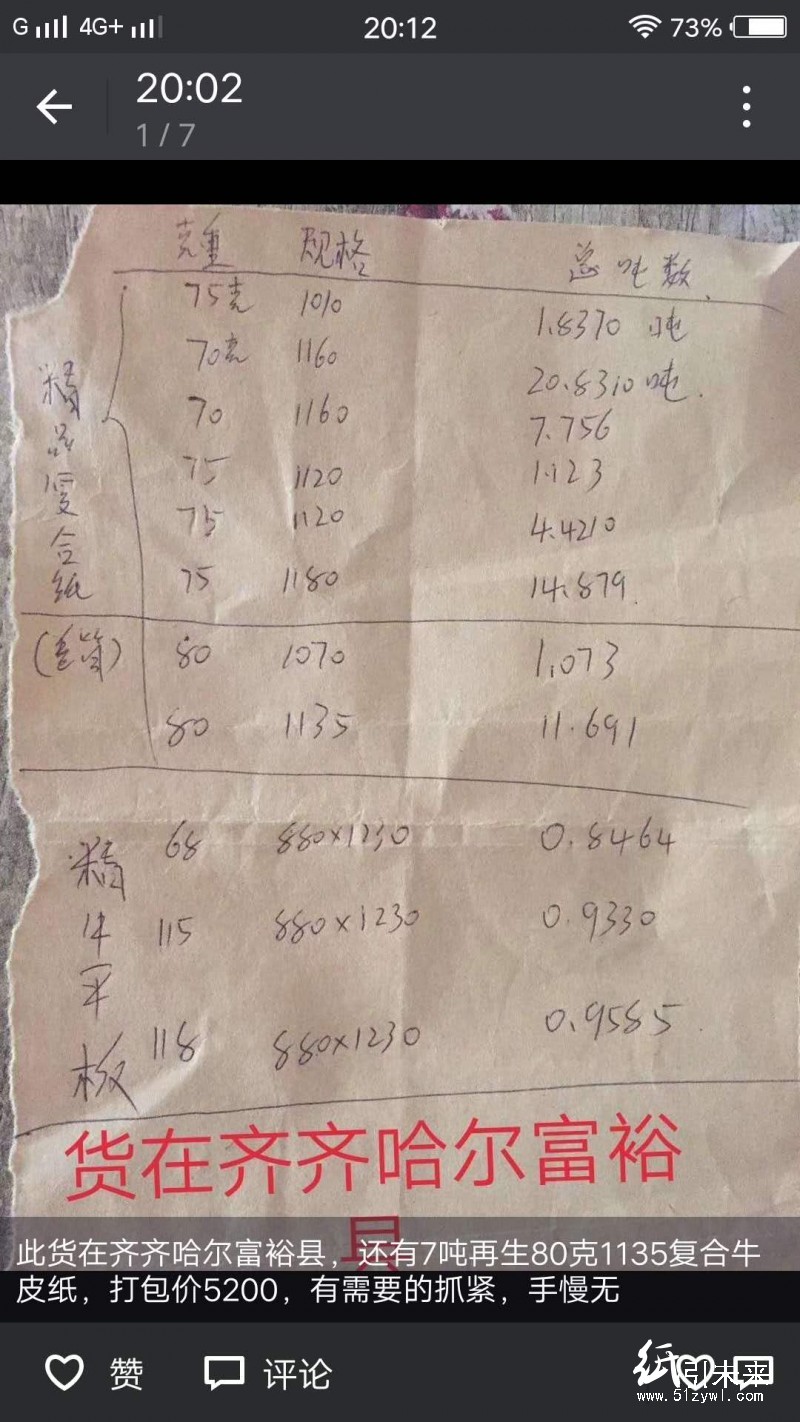 G 4G+ 20:12 73%
20:02
1 / 7
克重 规格 总吨数
75克 1010 1.8370 吨
70克 1160 20.8310 吨.
70 1160 7.756
75 1120 1.123
75 1120 4.4210
75 1180 14.879
精品复合纸
80 1070 1.073
80 1135 11.691
精牛平板
68 880×1230 0.8464
115 880×1230 0.9330
118 880×1230 0.9585
货在齐齐哈尔富裕
县
此货在齐齐哈尔富裕县，还有7吨再生80克1135复合牛
皮纸，打包价5200，有需要的抓紧，手慢无
赞 评论
纸引未来
www.51zywl.com